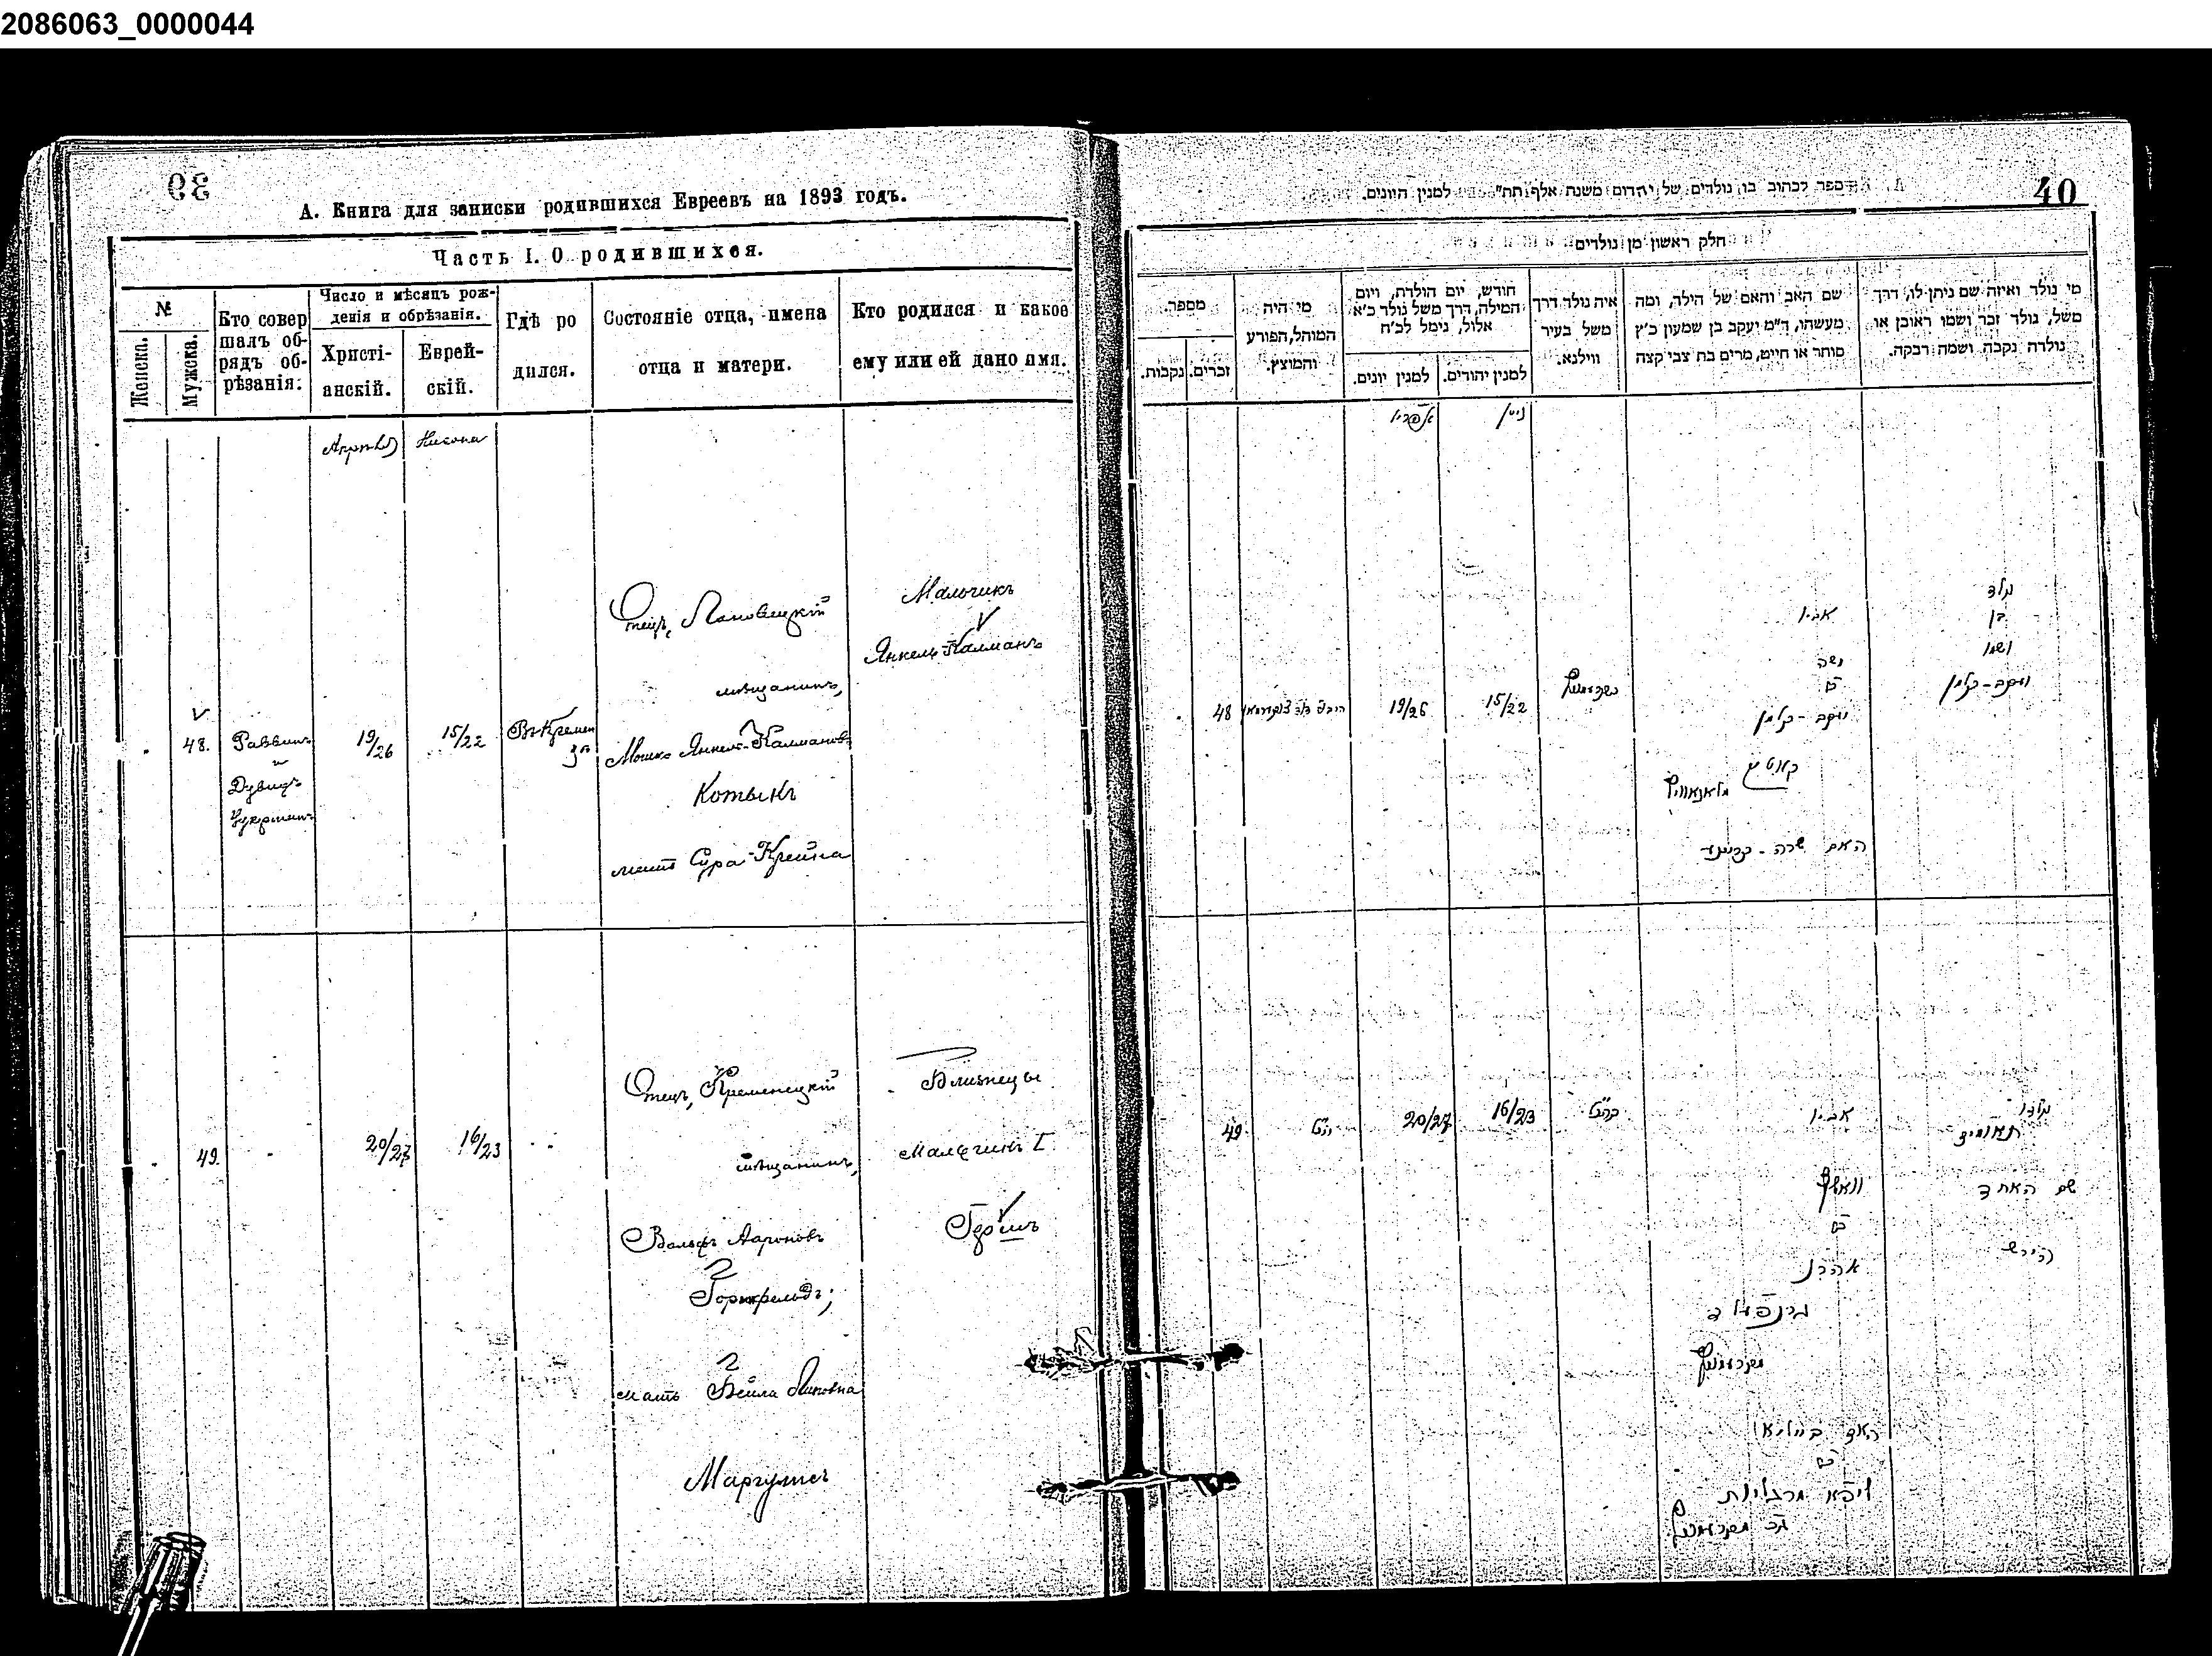 2086063_0000044
39
А. Книга для записки родившихся Евреевъ на 1893 годъ.
Часть I. О родившихся.
№
Женска.
Мужска.
Кто совер
шалъ об-
рядъ об-
рѣзанія:
Число и мѣсяцъ рож-
денія и обрѣзанія.
Христі-
анскій.
Еврей-
скій.
Гдѣ ро
дился.
Состояніе отца, имена
отца и матери.
Кто родился и какое
ему или ей дано имя.
Нисона
48.
Раввинъ
и
Дувидъ
19/26
15/22
Отецъ,
мѣщанинъ,
Мошко Янкель-Калмановъ
Котыкъ
мать Сура-Крейна
Мальчикъ
Янкель-Калманъ
49.
20/27
16/23
Отецъ, Кременецкій
мѣщанинъ,
Вольфъ Аароновъ
Горнфельдъ;
мать Бейла
Маргулисъ
Близнецы
Мальчикъ I
Гершъ
40
ספר לכתוב בו נולדים של יהדום משנת אלף תת״ למנין היונים.
חלק ראשון מן נולדים
מספר.
נקבות.
זכרים.
מי היה
המוהל, הפורע
והמוצץ.
חודש, יום הולדת, ויום
המילה, דרך משל נולד כ״א
אלול, נימל לכ״ח
למנין יונים.
למנין יהודים.
איה נולד דרך
משל בעיר
ווילנא.
שם האב והאם של הילד, ומה
מעשהו, ד״מ יעקב בן שמעון כ״ץ
סוחר או חייט, מרים בת צבי קצה
מי נולד ואיזה שם ניתן לו, דרך
משל, נולד זכר ושמו ראובן או
נולדה נקבה ושמה רבקה.
ניסן
48
19/26
15/22
אביו
משה
ב׳
יעקב-קלמן
האם שרה-
נולד
בן
ושמו
יעקב-קלמן
49
20/27
16/23
אביו
וואלף
ב׳
אהרן
האם ביילא
ליפא מרגליות
נולדו
תאומים
שם האחד
הירש